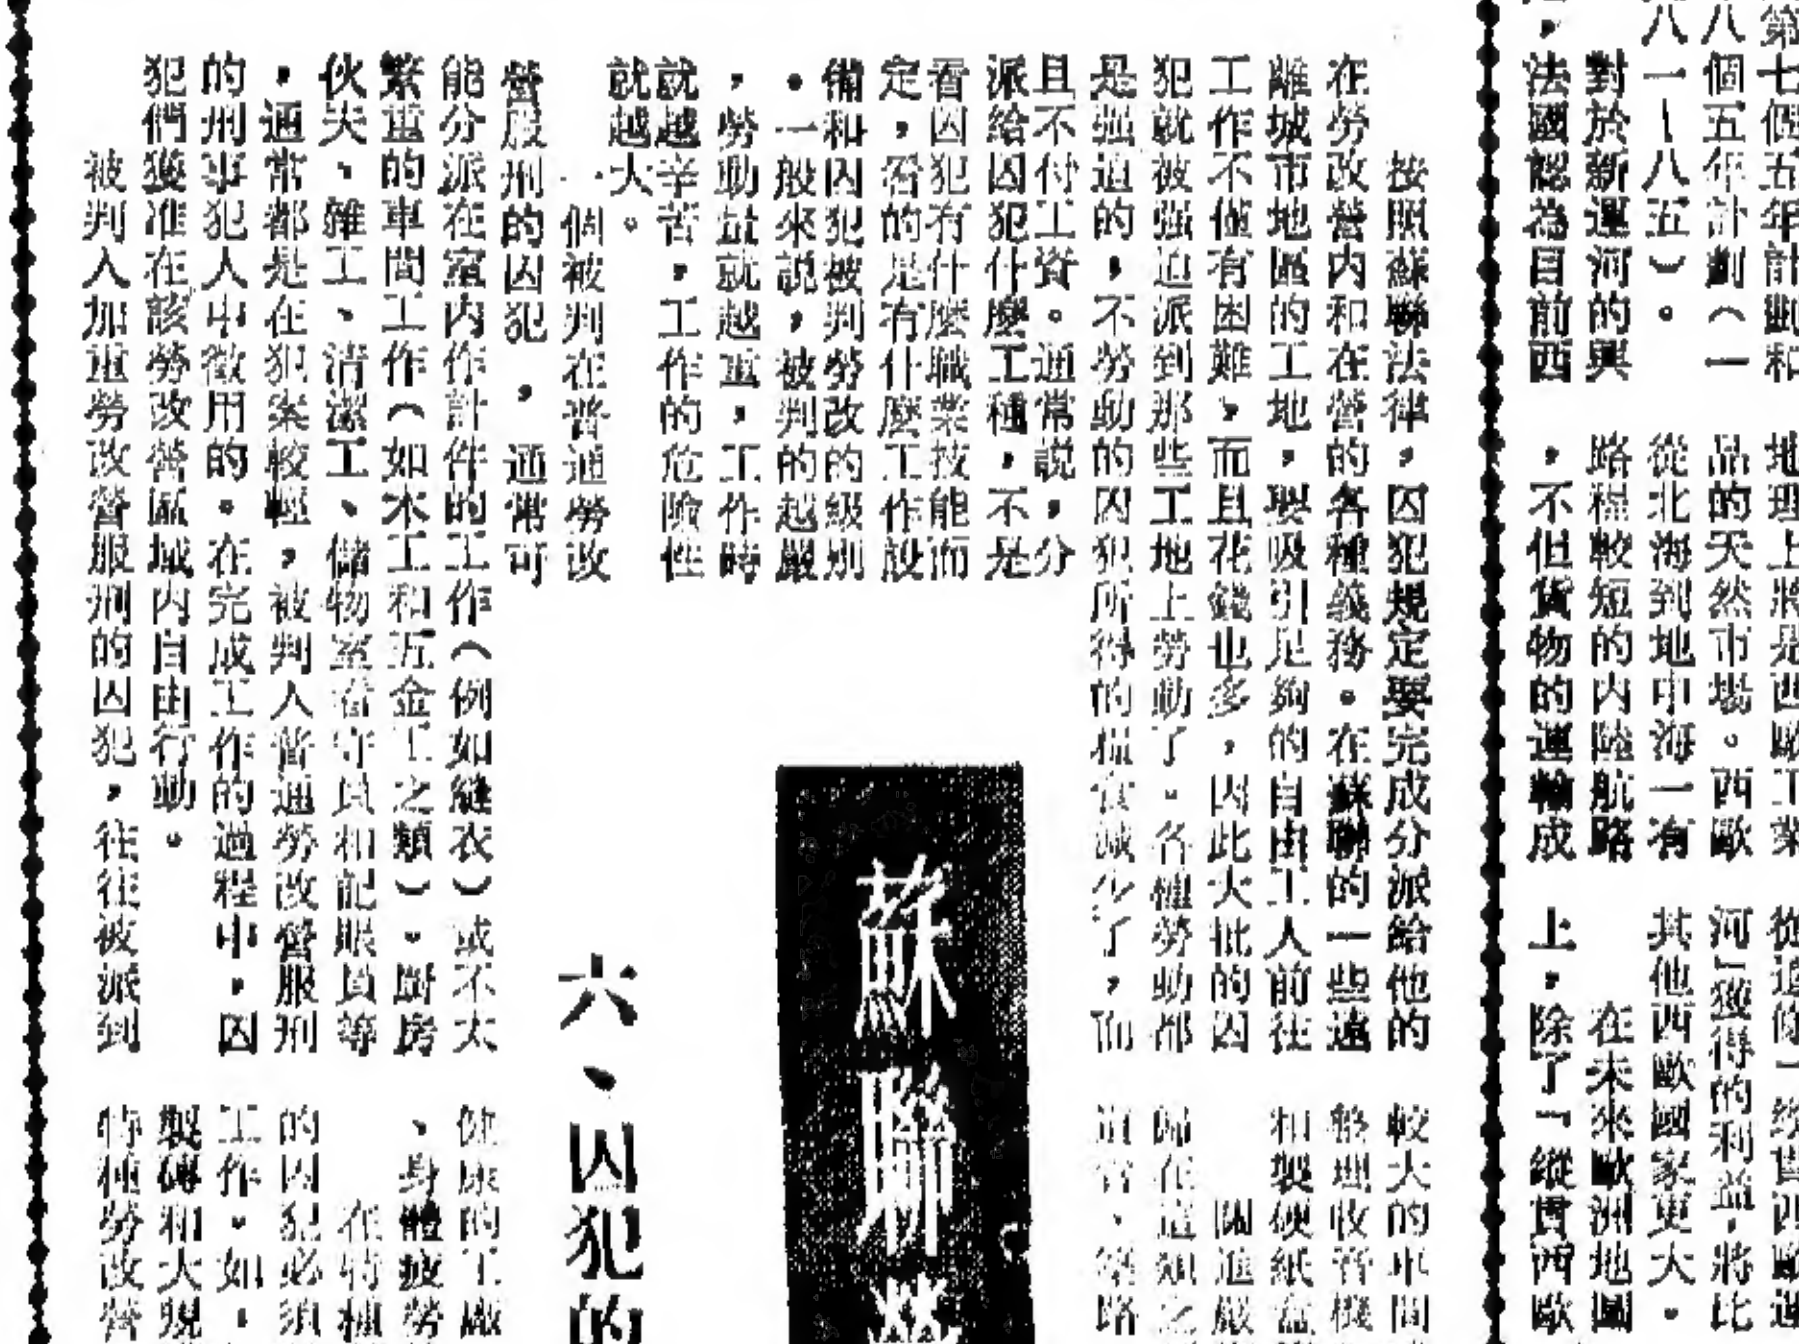 第七個五年計劃和
八個五年計劃（一
八一－八五）。
對於新運河的興
，法國認為目前西
地理上將是西歐工業
品的天然市場。西歐
從北海到地中海一有
路程較短的內陸航路
，不但貨物的運輸成
河」獲得的利益，將比
其他西歐國家更大。
在未來歐洲地圖
上，除了「縱貫西歐
按照蘇聯法律，囚犯規定要完成分派給他的
在勞改營內和在營的各種義務。在蘇聯的一些遠
離城市地區的工地，要吸引足夠的自由工人前往
工作不僅有困難，而且花錢也多，因此大批的囚
犯就被强迫派到那些工地上勞動了。各種勞動都
是强迫的，不勞動的囚犯所得的糧食減少了，而
且不付工資。通常說，分
派給囚犯什麼工種，不是
看囚犯有什麼職業技能而
定，看的是有什麼工作設
備和囚犯被判勞改的級別
。一般來說，被判的越嚴
，勞動量就越重，工作時
就越辛苦，工作的危險性
就越大。
一個被判在普通勞改
營服刑的囚犯，通常可
能分派在室內作計件的工作（例如縫衣）或不太
繁重的車間工作（如木工和五金工之類）。廚房
伙夫、雜工、清潔工、儲物室看守員和記賬員等
，通常都是在犯案較輕，被判入普通勞改營服刑
的刑事犯人中徵用的。在完成工作的過程中，囚
犯們獲准在該勞改營區域內自由行動。
被判入加重勞改營服刑的囚犯，往往被派到
蘇聯勞
六、囚犯的
較大的車間
和製硬紙盒
健康的工廠
、身體疲勞
在特種
的囚犯必須
工作。如，
製磚和大規
特種勞改營